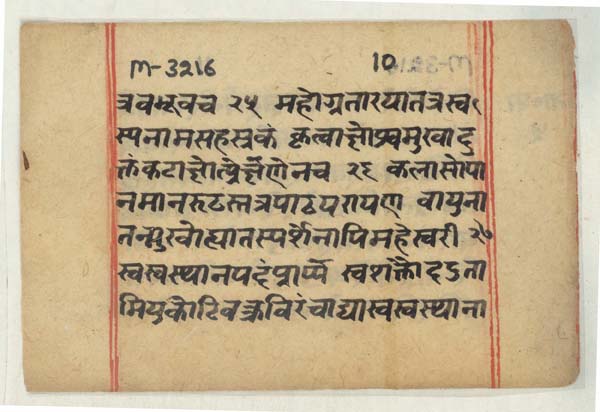 M-3216 10
त्रवभूवच २५ महोग्रतारयातत्रस्व
स्यनामसहस्रकं कृत्वा मुखाद्
नच २६ कलासोपा
नमानरुठस्तत्रपाठपरायण वायुना
तन्मुखोद्घातस्पर्शेनापिमहेस्वरी २७
स्वस्वस्थानपदंप्राप्य स्वशक्तौदऽता
मियुकोटिवज्रविरंचाद्यास्वस्वस्थाना